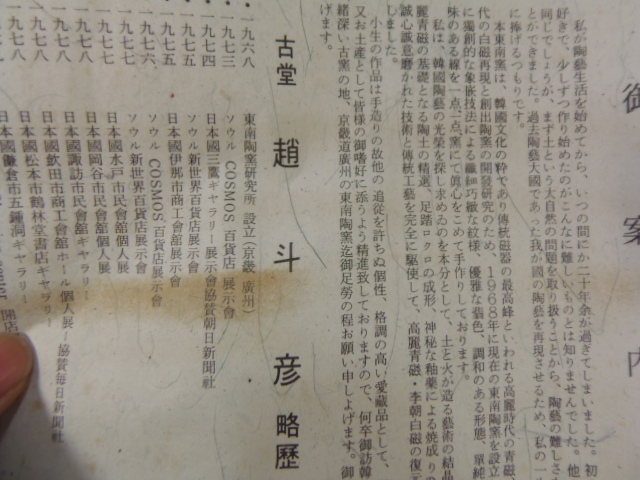 御案内
私が陶藝生活を始めてから、いつの間にか二十年余が過ぎてしまいました。初
好きで、少しずつ作り始めたのがこんなに難しいものとは知りませんでした。他
同じでしょうが、まず土という大自然の問題を取り扱うことから、陶藝の難しさ
とができました。過去陶藝大國であった我が國の陶藝を再現させるため、私の一
に捧げるつもりです。
本東南窯は、韓國文化の粋であり傳統磁器の最高峰といわれる高麗時代の青磁、
代の白磁再現と創出陶窯の開發研究のため、1968年に現在の東南陶窯を設立
に獨創的な象嵌技法による纖細巧緻な紋様、優雅な翡色、調和のある形態、單純
味のある線を一点一点窯にて眞心をこめて手作りしております。
私は、韓國陶藝の光榮を探し求めるのを本分として、土と火が造る藝術の結晶
麗青磁の基礎となる陶土の精選、足踏ロクロの成形、神秘な釉薬による焼成りの
誠心誠意磨かれた技術と傳統工藝を完全に駆使して、高麗青磁・李朝白磁の復元
しました。
小生の作品は手造りの故他の追従を許ちぬ個性、格調の高い愛藏品として、
又お土産として皆様の御嗜好に添うよう精進致しておりますので、何卒御訪韓
緒深い古窯の地、京畿道廣州の東南陶窯迄御足勞の程お願い申しよげます。御
げます。
古堂 趙斗彦 略歷
一九六八 東南陶窯研究所 設立(京畿 廣州)
一九七三 ソウル COSMOS 百貨店 展示會
一九七四 日本國三鷹ギャラリー展示會協賛朝日新聞社
一九七五 ソウル新世界百貨店展示會
一九七五 日本國伊那市商工會館展示會
一九七六 ソウル COSMOS 百貨店展示會
一九七七 ソウル新世界百貨店展示會
一九七七 日本國水戸市民會館個人展
一九七七 日本國岡谷市民會館個人展
一九七八 日本國諏訪市民會館ギャラリー
一九七八 日本國飯田市商工會館ホール個人展・協賛毎日新聞社
日本國松本市鶴林堂書店ギャラリー
日本國鎌倉市五鍾洞ギャラリー